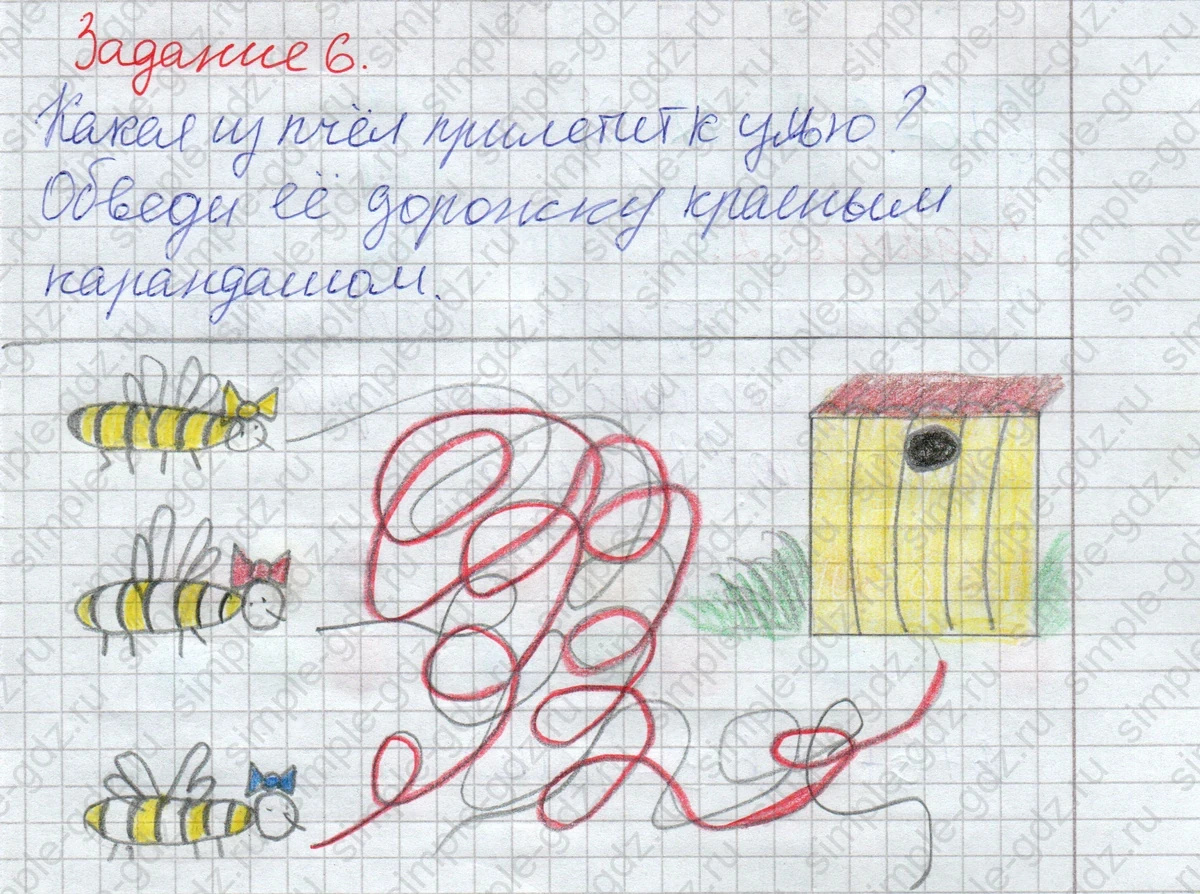 Задание 6.
Какая из пчёл прилетит к улью?
Обведи её дорожку красным
карандашом.
simple-gdz.ru